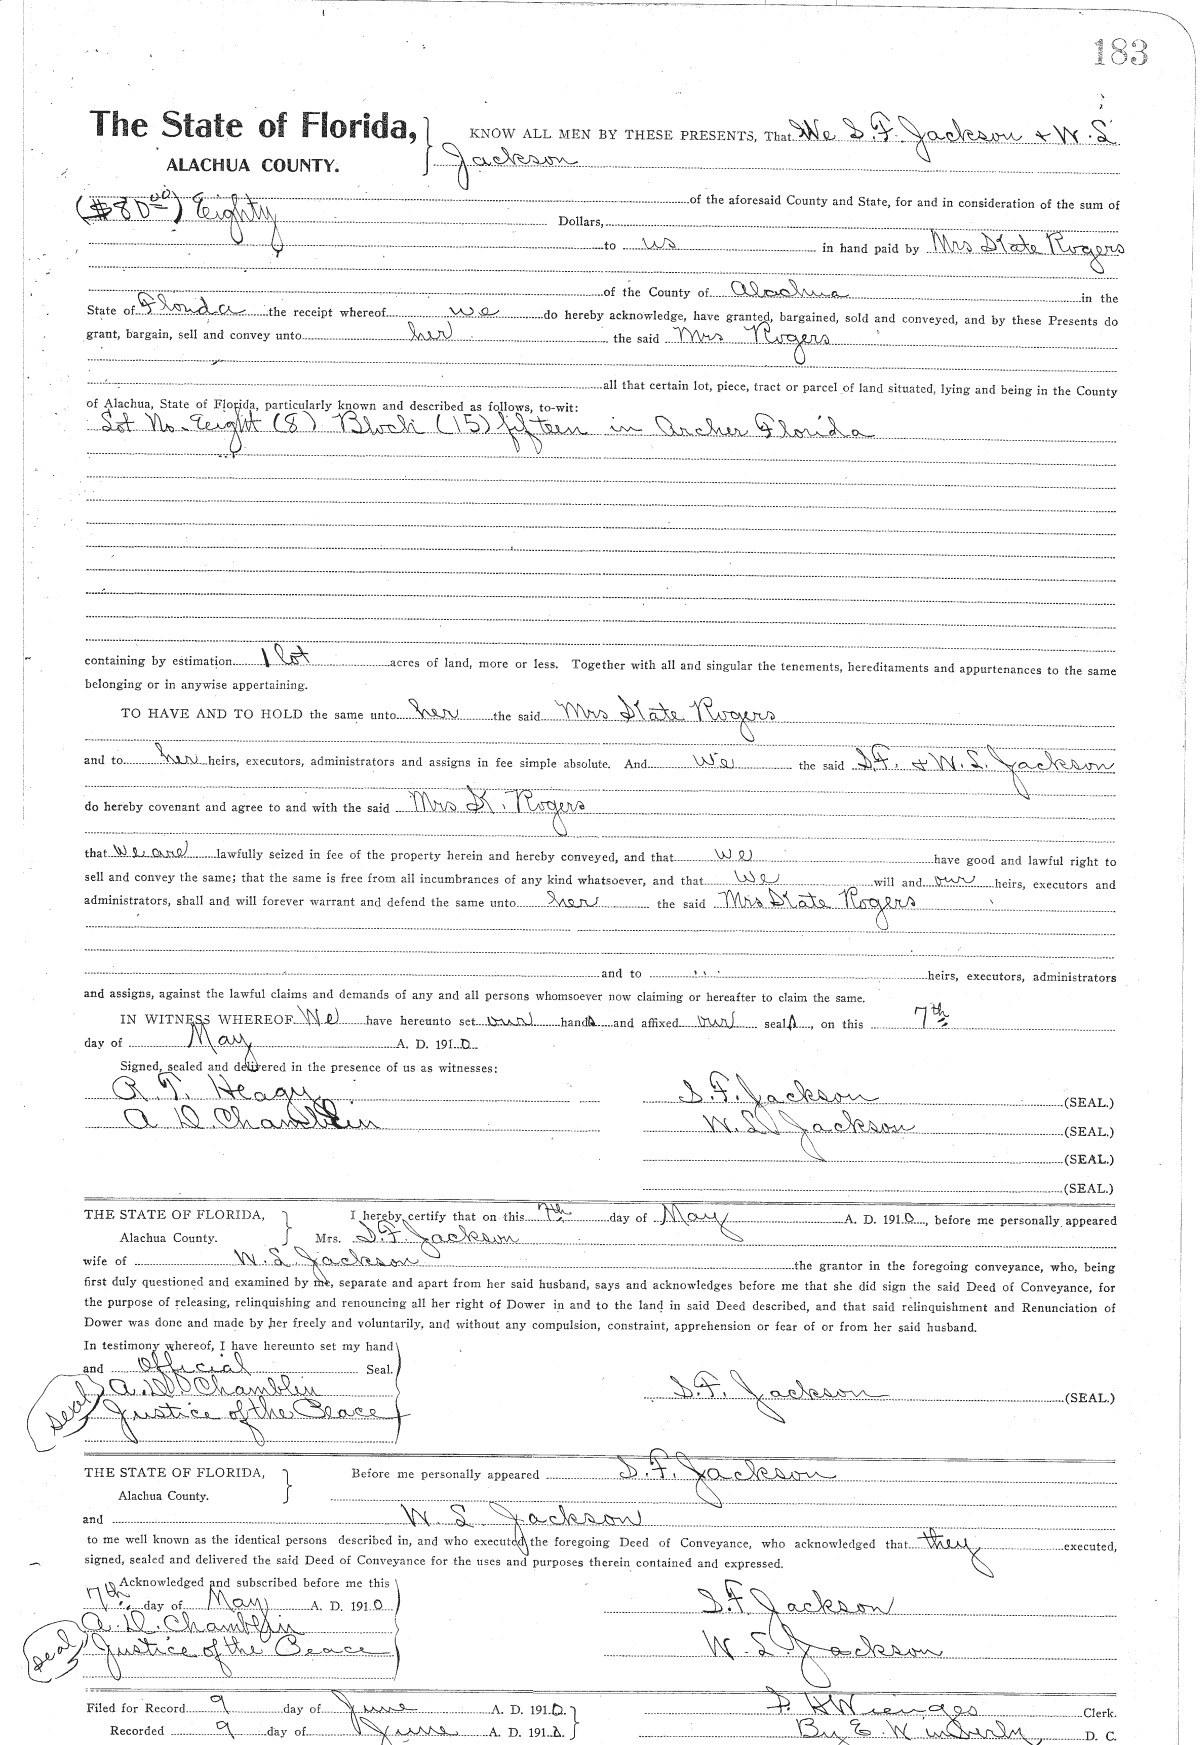 183
The State of Florida, KNOW ALL MEN BY THESE PRESENTS, That We S. F. Jackson & W. L
ALACHUA COUNTY. Jackson
of the aforesaid County and State, for and in consideration of the sum of
($80.00) Eighty Dollars,
to us in hand paid by Mrs Kate Rogers
of the County of Alachua in the
State of Florida the receipt whereof we do hereby acknowledge, have granted, bargained, sold and conveyed, and by these Presents do
grant, bargain, sell and convey unto her the said Mrs Rogers
all that certain lot, piece, tract or parcel of land situated, lying and being in the County
of Alachua, State of Florida, particularly known and described as follows, to-wit:
Lot No. Eight (8) Block (15) fifteen in Archer Florida
containing by estimation 1 lot acres of land, more or less. Together with all and singular the tenements, hereditaments and appurtenances to the same
belonging or in anywise appertaining.
TO HAVE AND TO HOLD the same unto her the said Mrs Kate Rogers
and to her heirs, executors, administrators and assigns in fee simple absolute. And we the said S.F. & W. L. Jackson
do hereby covenant and agree to and with the said Mrs K. Rogers
that we are lawfully seized in fee of the property herein and hereby conveyed, and that we have good and lawful right to
sell and convey the same; that the same is free from all incumbrances of any kind whatsoever, and that we will and our heirs, executors and
administrators, shall and will forever warrant and defend the same unto her the said Mrs Kate Rogers
and to " heirs, executors, administrators
and assigns, against the lawful claims and demands of any and all persons whomsoever now claiming or hereafter to claim the same.
IN WITNESS WHEREOF We have hereunto set our hands and affixed our seals, on this 7th
day of May A. D. 1910
Signed, sealed and delivered in the presence of us as witnesses:
R. T. Heagy S. F. Jackson (SEAL.)
A D Chamblin W. L. Jackson (SEAL.)
(SEAL.)
(SEAL.)
THE STATE OF FLORIDA, I hereby certify that on this 7th day of May A. D. 1910, before me personally appeared
Alachua County. Mrs. S. F. Jackson
wife of W. L Jackson the grantor in the foregoing conveyance, who, being
first duly questioned and examined by me, separate and apart from her said husband, says and acknowledges before me that she did sign the said Deed of Conveyance, for
the purpose of releasing, relinquishing and renouncing all her right of Dower in and to the land in said Deed described, and that said relinquishment and Renunciation of
Dower was done and made by her freely and voluntarily, and without any compulsion, constraint, apprehension or fear of or from her said husband.
In testimony whereof, I have hereunto set my hand
and Official Seal.
A. D Chamblin S. F. Jackson (SEAL.)
Seal Justice of the Peace
THE STATE OF FLORIDA, Before me personally appeared S. F. Jackson
Alachua County.
and W. L Jackson
to me well known as the identical persons described in, and who executed the foregoing Deed of Conveyance, who acknowledged that they executed,
signed, sealed and delivered the said Deed of Conveyance for the uses and purposes therein contained and expressed.
Acknowledged and subscribed before me this
7th day of May A. D. 1910 S. F. Jackson
A. D. Chamblin
seal Justice of the Peace W. L. Jackson
Filed for Record 9 day of June A. D. 1910. S. H Wienges Clerk.
Recorded 9 day of June A. D. 1910. By E. Wimberly, D. C.